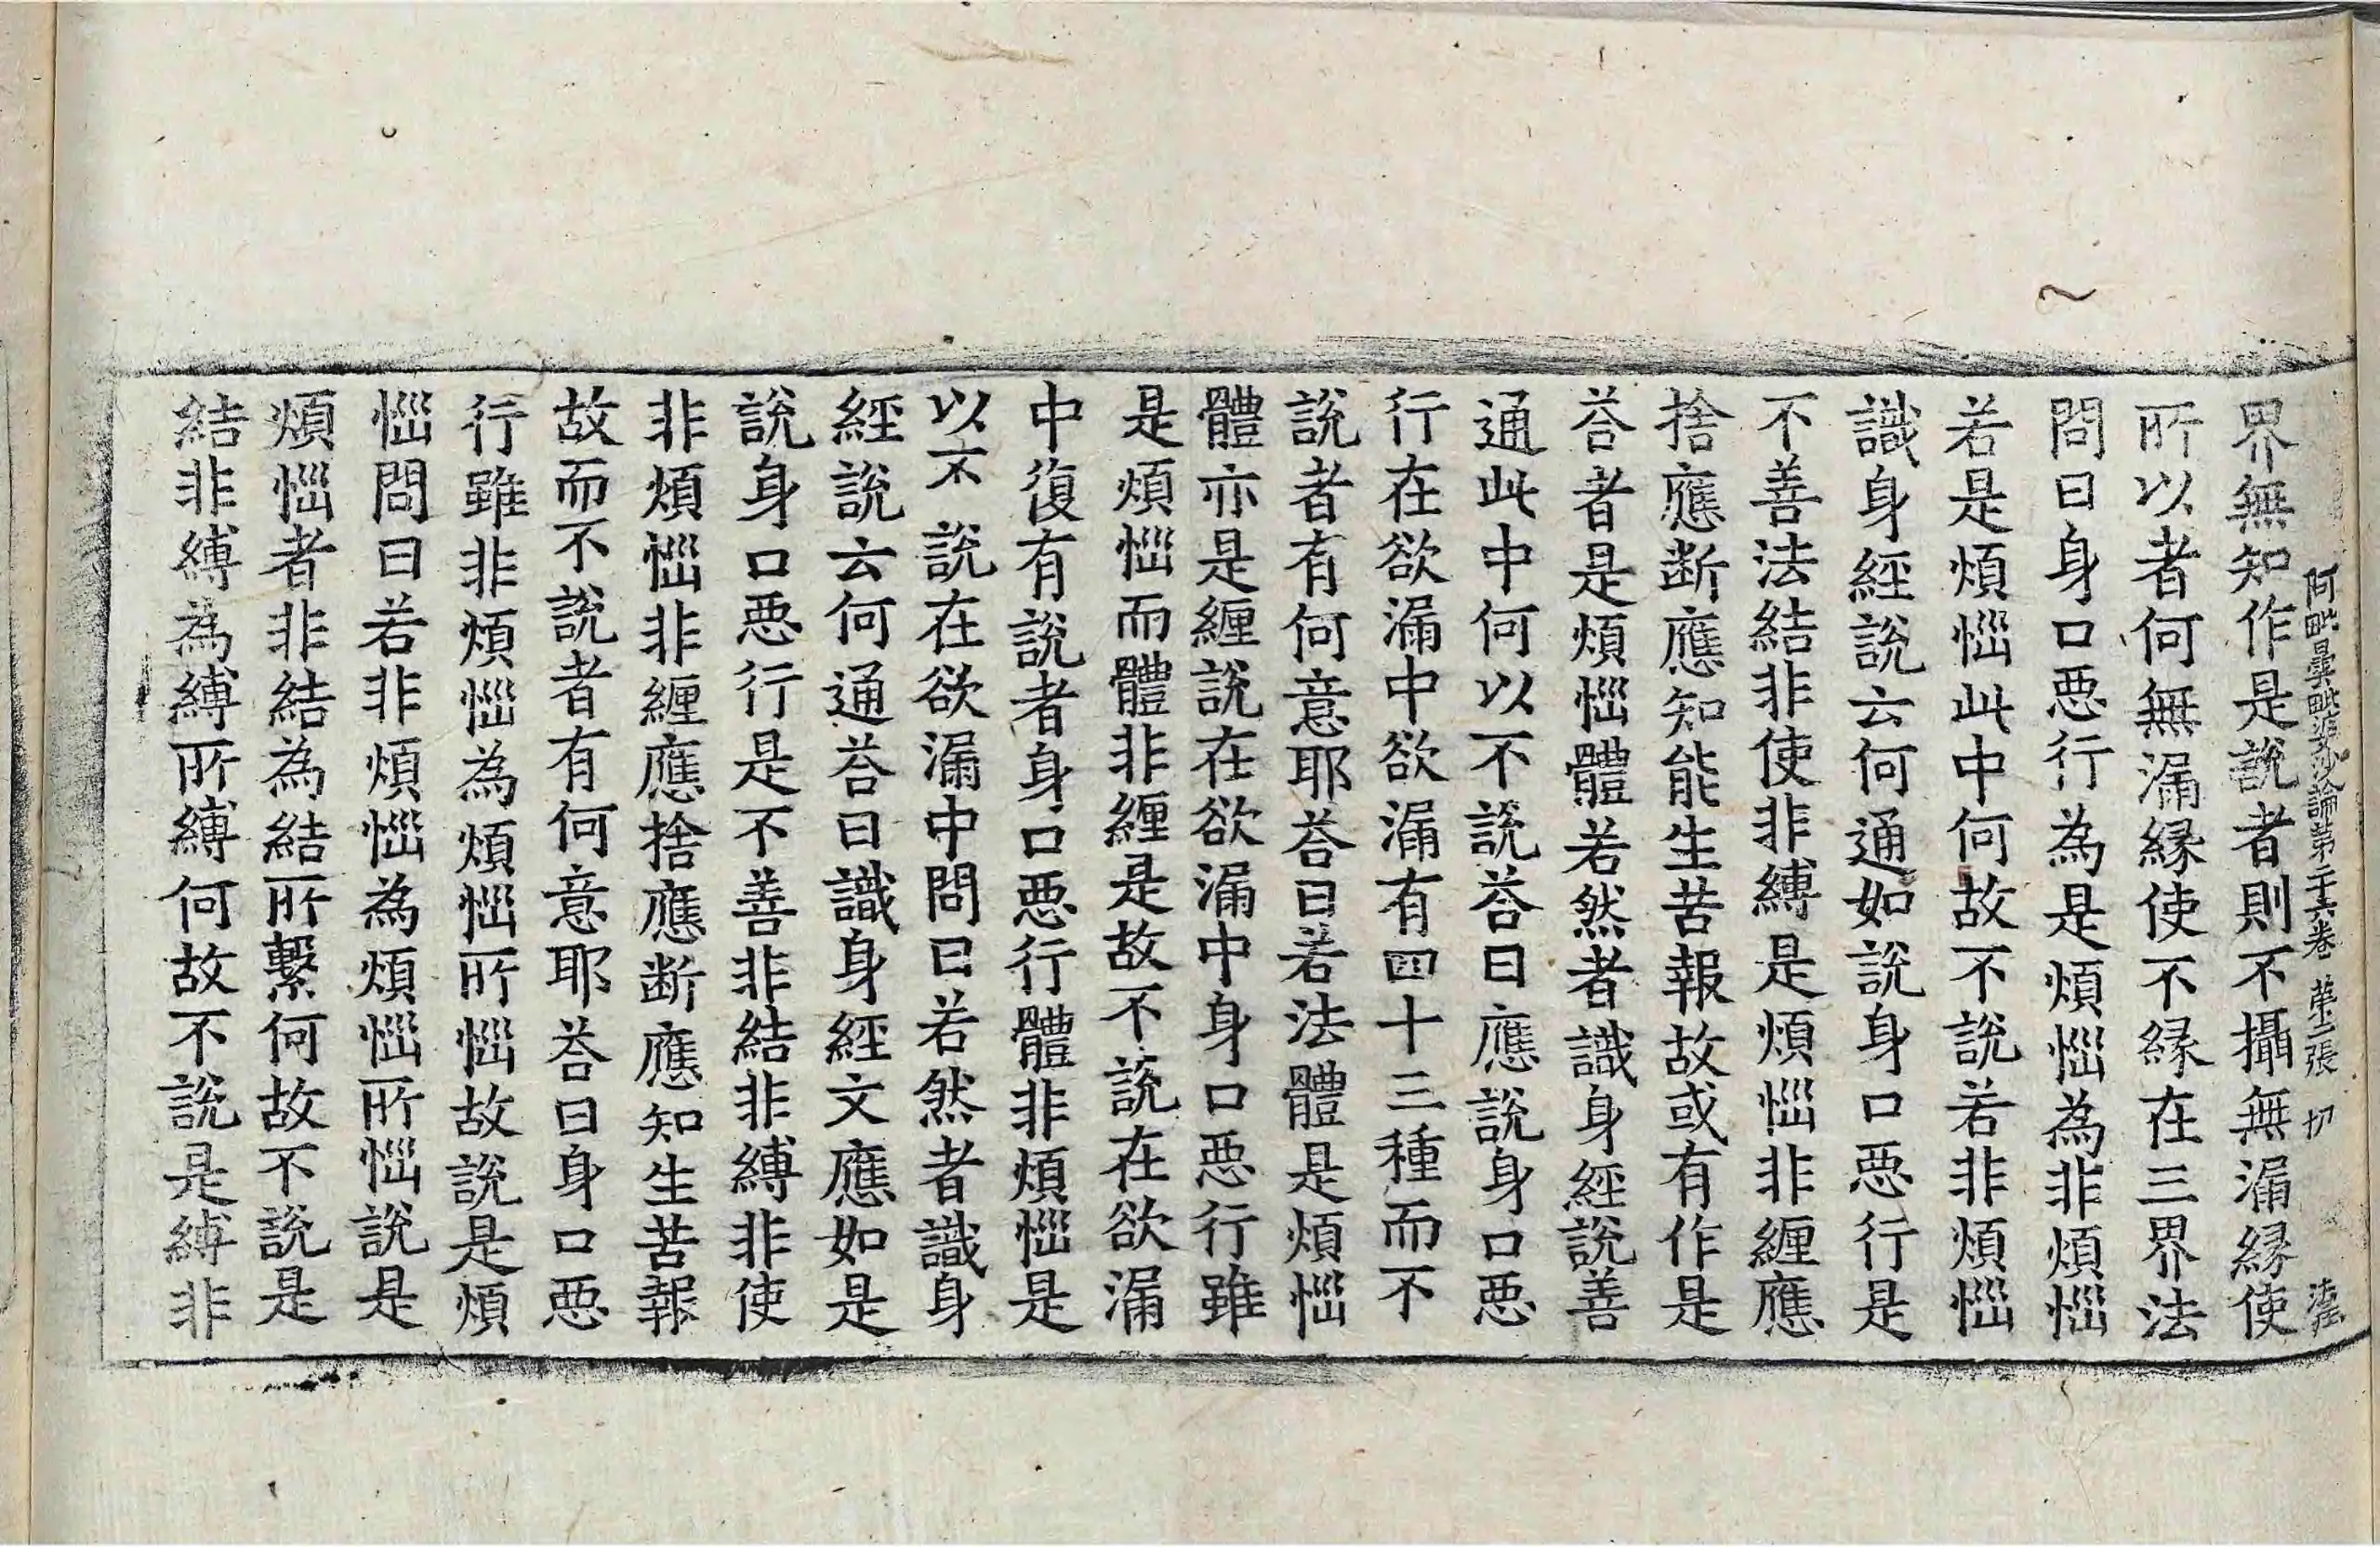 阿毗曇毗婆沙論第二十六卷 第三張 切
界無知作是說者則不攝無漏縁使
所以者何無漏縁使不縁在三界法
問曰身口惡行為是煩惱為非煩惱
若是煩惱此中何故不說若非煩惱
識身經說云何通如說身口惡行是
不善法結非使非縛是煩惱非纏應
捨應断應知能生苦報故或有作是
荅者是煩惱體若然者識身經說善
通此中何以不說荅曰應說身口惡
行在欲漏中欲漏有四十三種而不
說者有何意耶荅曰若法體是煩惱
體亦是纏說在欲漏中身口惡行雖
是煩惱而體非纏是故不說在欲漏
中復有說者身口惡行體非煩惱是
以不說在欲漏中問曰若然者識身
經說云何通荅曰識身經文應如是
說身口惡行是不善非結非縛非使
非煩惱非纏應捨應断應知生苦報
故而不說者有何意耶荅曰身口惡
行雖非煩惱為煩惱所惱故說是煩
惱問曰若非煩惱為煩惱所惱說是
煩惱者非結為結所繫何故不說是
結非縛為縛所縛何故不說是縛非